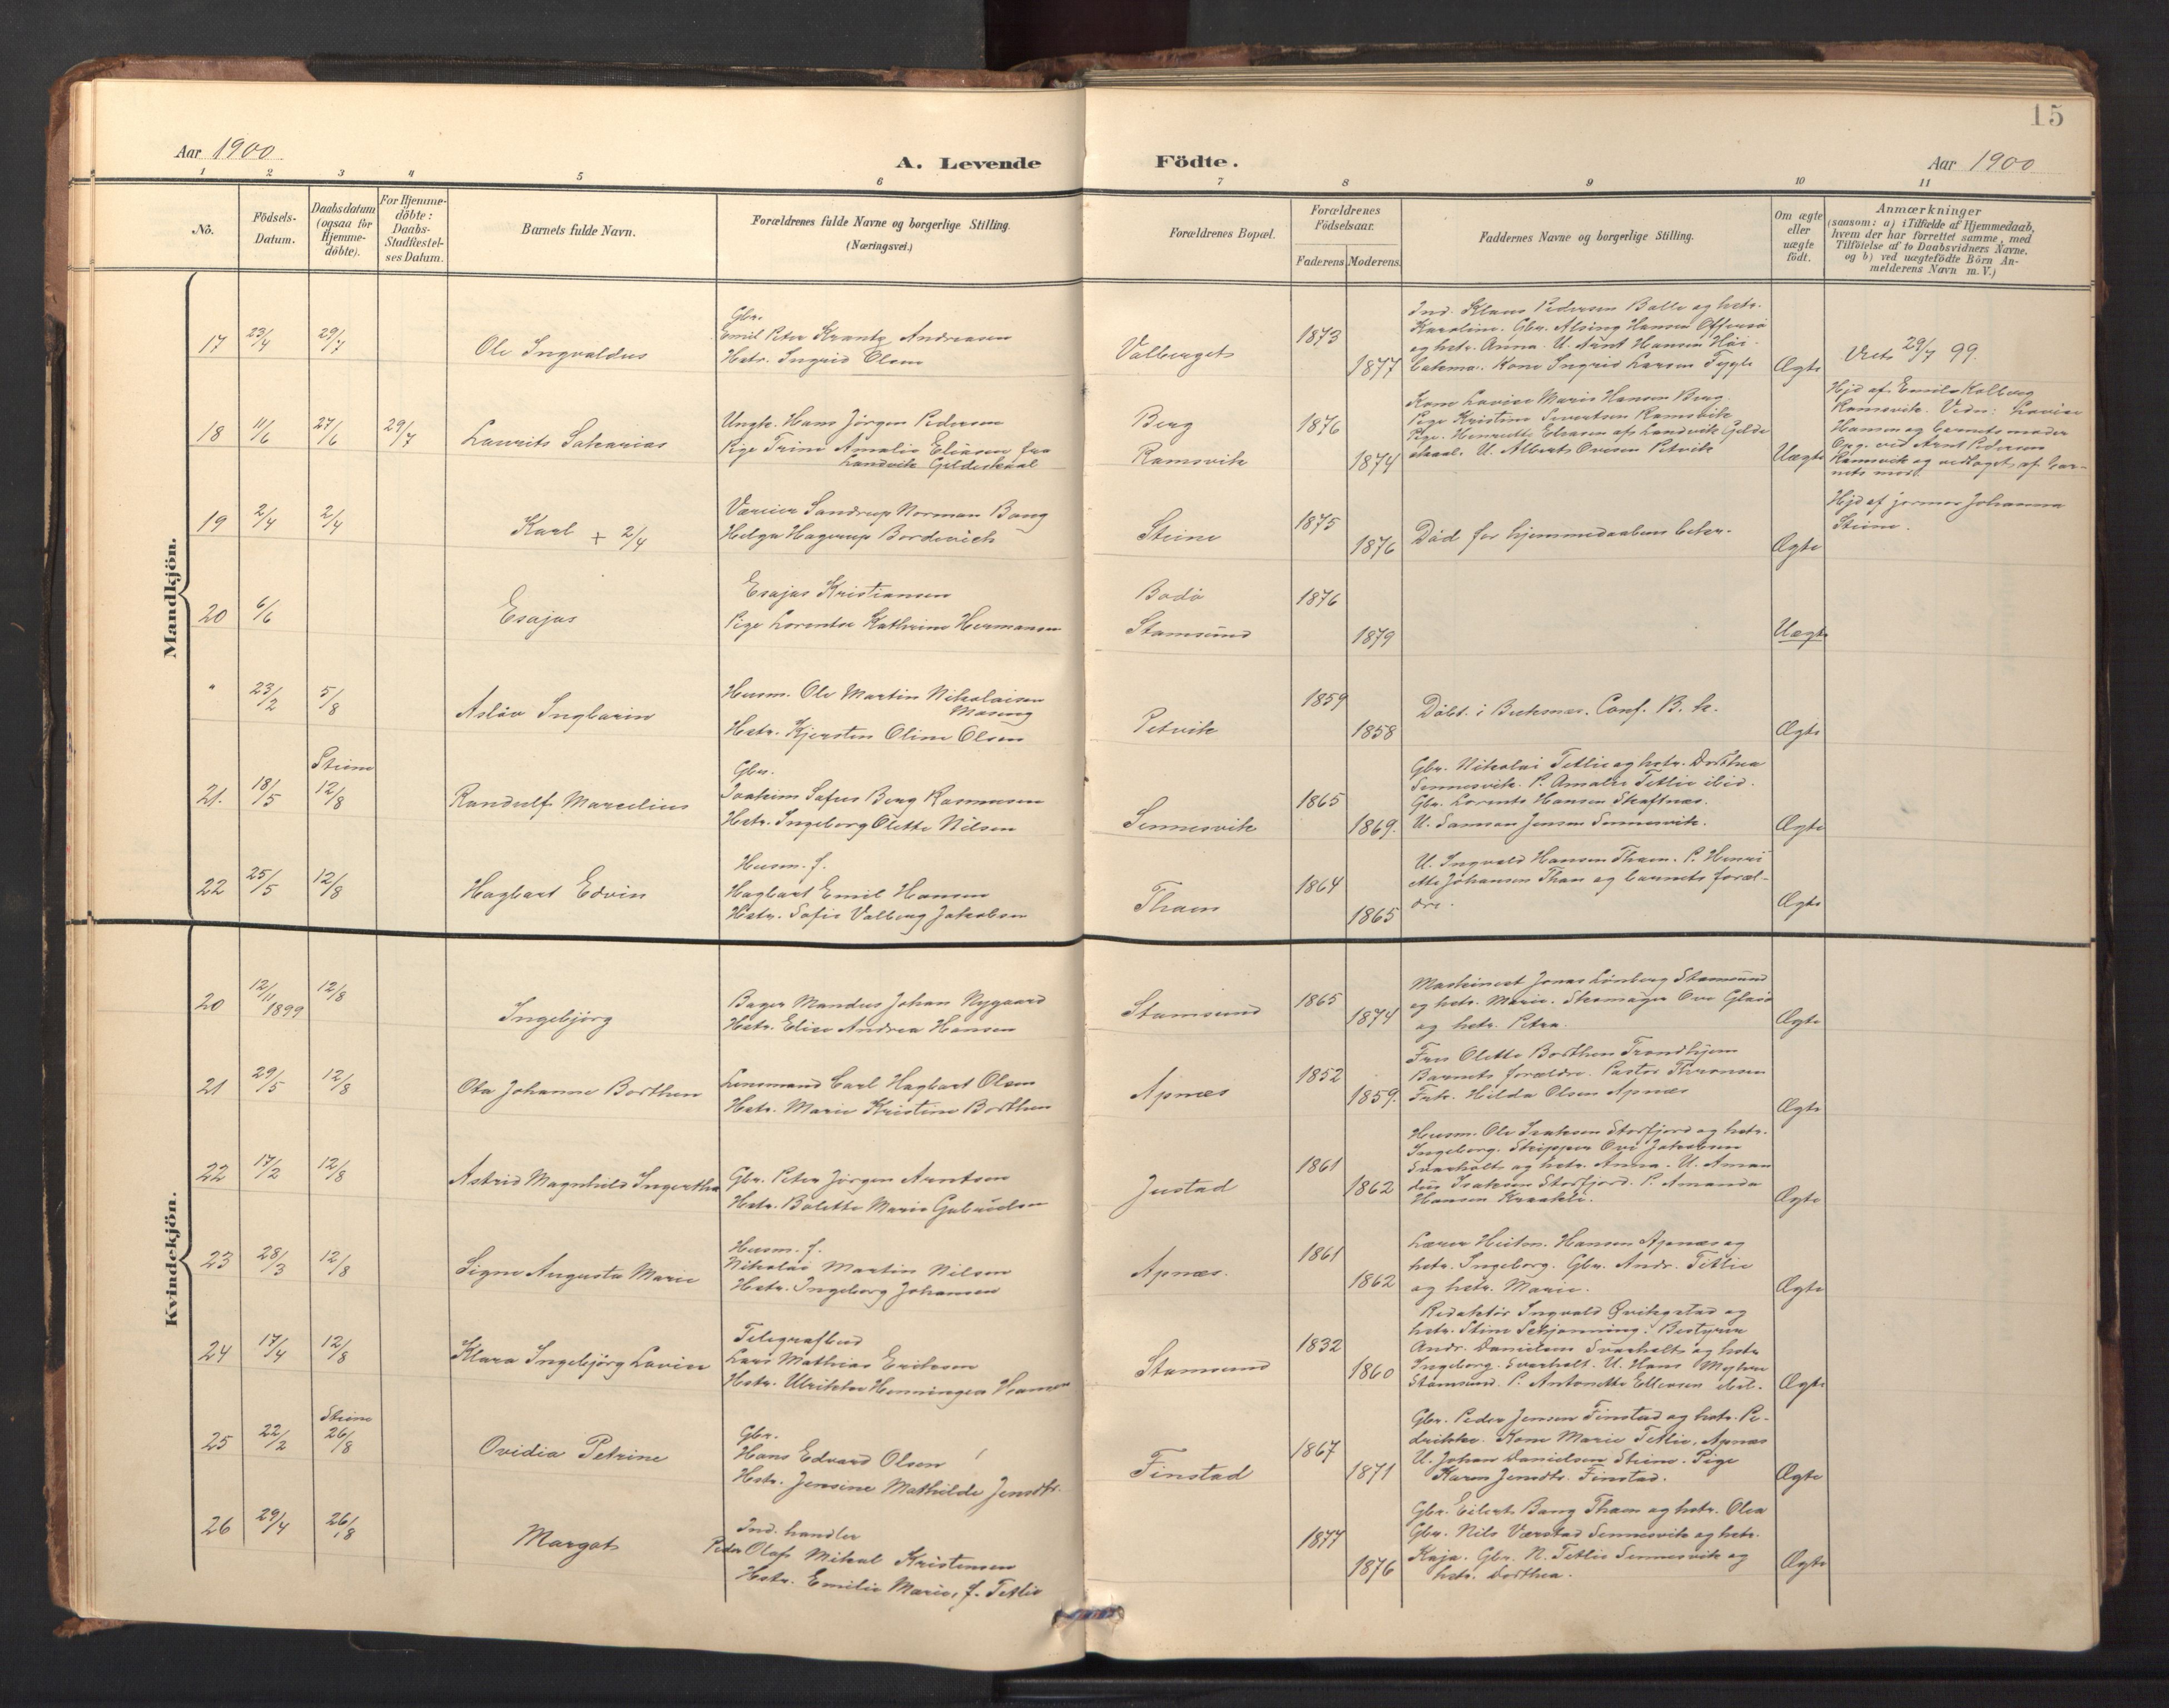 15
Aar 1900
A. Levende
Födte.
Aar 1900
1 2 3 4 5 6 7 8 9 10 11
No.
Födsels-
Datum.
Daabsdatum
(ogsaa for
Hjemme-
döbte).
For Hjemme-
döbte:
Daabs-
Stadfæstel-
ses Datum.
Barnets fulde Navn.
Forældrenes fulde Navne og borgerlige Stilling.
(Næringsvei.)
Forældrenes Bopæl.
Forældrenes
Födselsaar.
Faderens Moderens.
Faddernes Navne og borgerlige Stilling.
Om ægte
eller
uægte
födt.
Anmærkninger
(saasom: a) i Tilfælde af Hjemmedaab,
hvem der har forrettet samme, med
Tilföielse af to Daabsvidners Navne,
og b) ved uægtefödte Börn An-
melderens Navn m. V.)
Mandkjön.
17 23/4 29/7
Ole Ingvaldus
Gbr.
Emil Peter Krantz Andreasen
Hstr. Ingrid Olsen
Valberget
1873
1877
Ind. Klaus Pedersen Balle og hstr.
Karoline. Gbr. Alsing Hansen Offersö
og hstr. Anna. U. Arnt Hansen Hai-
Kone Ingrid Larsen Fygle
Ægte
29/7 99.
18 11/6 27/6 29/7
Laurits Sakarias
Ungk. Hans Jörgen Pedersen
Pige Trine Amalie Eliasen fra
Landvik Gildeskaal
Berg
Ramsvik
1876
1874
Kone Lovise Marie Hansen Berg.
Pige Kristine Sivertsen Ramsvik
Pige. Henriette Eliasen af Landvik Gilde
skaal. U. Albert Ovesen Petvik
Uægte
Hjd af. Emil Kolberg
Ramsvik. Vidn: Lovise
Hansen og barnets moder
Opg. ved Arnt Pedersen
Ramsvik og vedtaget af bar-
nets mor.
19 2/4 2/4
Karl + 2/4
Væreier Sandrup Norman Bang
Helga Hagerup Bordevich
Steine
1875
1876
Död før hjemmedaabens bekr.
Ægte
Hjd af jormor Johanna
Steine.
20 6/6
Esajas
Esajas Kristiansen
Pige Lorentse Kathrine Hermansen
Bodö
Stamsund
1876
1879
Uægte
" 23/2 5/8
Aslöv Ingbarin
Husm. Ole Martin Nikolaisen
Masing
Hstr. Kjersten Oline Olsen
Petvik
1859
1858
Döbt i Buksnæs. Conf. B. k.
Ægte
Steine
21. 18/5 12/8
Randulf Marselius
Gbr.
Joakim Sofus Berg Rasmussen
Hstr. Ingeborg Olette Nilsen
Sennesvik
1865
1869.
Gbr. Nikolai Tetlie og hstr. Dorthea
Sennesvik. P. Amalie Tetlie ibid.
Gbr. Lorents Hansen Skaftnæs.
U. Samson Jensen Sennesvik.
Ægte
22 25/5 12/8
Hagbart Edvin
Husm. f.
Hagbart Emil Hansen
Hstr. Sofie Valborg Jakobsen
Thaen
1864
1865
U. Ingvald Hansen Thaen. P. Henri
ette Johansen Thaen og barnets foræl-
dre.
Ægte
Kvindekjön.
20 12/11 1899 12/8
Ingebjörg
Bager Mandus Johan Nygaard
Hstr. Elise Andrea Hansen
Stamsund
1865
1874
Maskinist Jonas Lönberg Stamsund
og hstr. Marie. Skomager Ove Glaiø
og hstr. Petra.
Ægte
21 29/5 12/8
Ota Johanne Borthen
Lensmand Carl Hagbart Olsen
Hstr. Marie Kristine Borthen
Apnæs
1852
1859.
Fru Olette Borthen Trondhjem
Barnets forældre. Pastor Thronsen
Frk. Hilda Olsen Apnæs
Ægte
22 17/2 12/8
Astrid Magnhild Ingertha
Gbr. Peter Jörgen Arntsen
Hstr. Bolette Marie Gabrielsen
Justad
1861
1862
Husm. Ole Isaksen Storfjord og hstr.
Ingeborg. Skipper Ove Jakobsen
Svarholt og hstr. Anna. U. Aman
dus Isaksen Storfjord. P. Amanda
Hansen
Ægte
23 28/3 12/8
Signe Augusta Marie
Husm. f.
Nikolai Martin Nilsen
Hstr. Ingeborg Johansen
Apnæs.
1861
1862
Lærer Hansen Apnæs og
hstr. Ingeborg. Gbr. Andr. Tetlie
og hstr. Marie.
Ægte
24 17/4 12/8
Klara Ingebjörg Lovise
Telegrafbud
Lars Mathias Eriksen
Hstr. Ulrikke Henningea Hansen
Stamsund
1832
1860
Redaktör Ingvald Qvikgstad og
hstr. Stine Schjønning. Bestyrer
Andr. Danielsen Svarholt og hstr
Ingeborg. Svarholt. U. Hans Myhre
Stamsund. P. Antonette Ellevsen ibid.
Ægte
Steine
25 22/2 26/8
Ovidia Petrine
Gbr.
Hans Edvard Olsen
Hstr. Jensine Mathilde Jensdtr.
Finstad
1867
1871
Gbr. Peder Jensen Finstad og hstr. Pe-
drikke. Kone Marie Tetlie, Apnæs
U. Johan Danielsen Steine. Pige
Karen Jensdtr. Finstad.
Ægte
26 29/4 26/8
Margot
Ind. handler
Peder Olaf Mikal Kristensen
Hstr. Emilie Marie, f. Tetlie
1877
1876
Gbr. Eilert Bang Thaen og hstr. Olea
Gbr. Nils Værstad Sennesvik og hstr.
Kaja. Gbr. N. Tetlie Sennesvik og
hstr. Dorthea.
Ægte